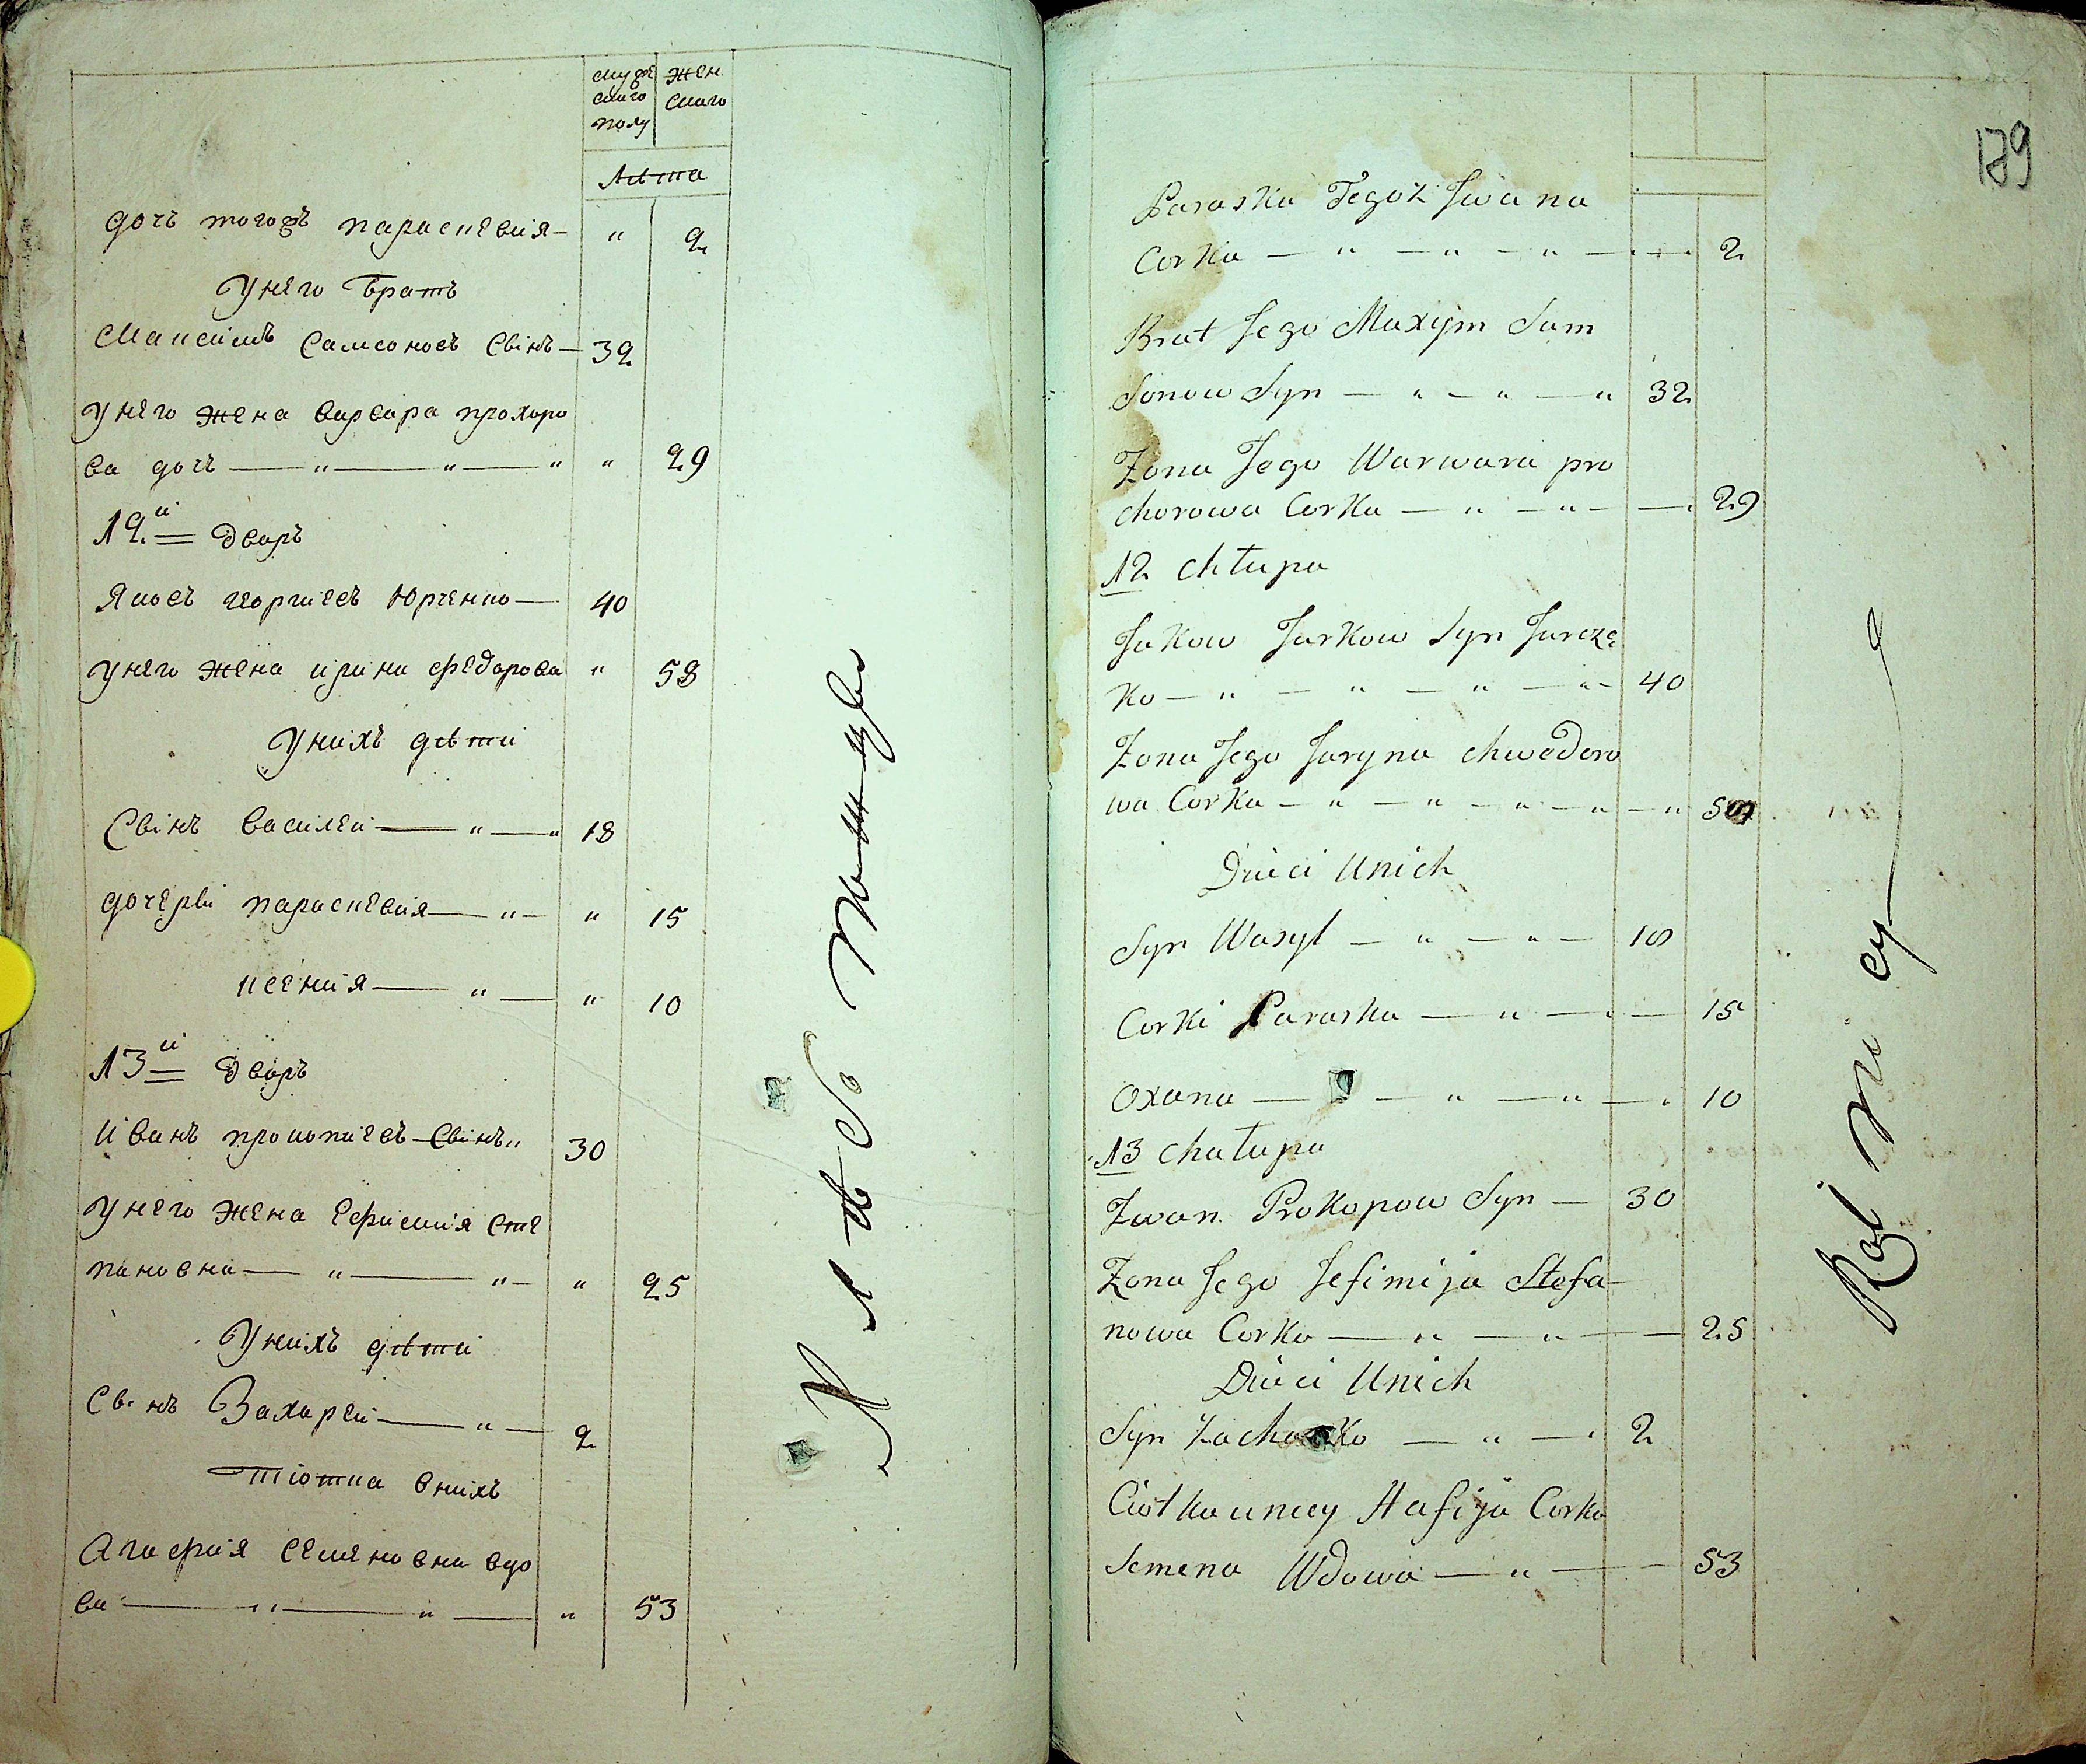 мужескаго полу
женскаго
лѣта
дочъ тогожъ параскевия — " 2
У него братъ
Максимъ Самсоновъ Свінъ — 32
У него жена варвара прохоро
ва дочъ — " — " — " " 29
12й дворъ
Яковъ георгиевъ Юрченко — 40
У него жена ирина федорова " 58
У нихъ дѣти
Свінъ василеи — " — " 18
дочерви параскевия — " — " 15
ксения — " — " 10
13й дворъ
Иванъ прокопиевъ Свінъ " 30
У него жена Ефимия Сте
пановна — " — " — " 25
У нихъ дѣти
Свінъ Захареи — " — 2
тіотка внихъ
Агафия Семеновна вдо
ва — " — " — " 53
189
Paraska Tegoż Jwana
Corka — " — " — " — 2
Brat Jego Maxym Sam
sonow Syn — " — " — " 32
Zona Jego Warwara pro
chorowa Corka — " — " — 29
12 chałupa
Jakow Jurkow Syn Jurcze
ko — " — " — " — " — 40
Zona Jego Jaryna chwedoro
wa Corka — " — " — " — " — " 58
Dzieci Unich
Syn Wasyl — " — " — 18
Corki Paraska — " — 15
Oxana — " — " — " — 10
13 chałupa
Iwan Prokopow Syn — 30
Zona Jego Jefimija Stefa-
nowa Corka — " — " — 25
Dzieci Unich
Syn Zacharko — " — 2
Ciotka uniey Hafija Corka
Semena Wdowa — " — 53